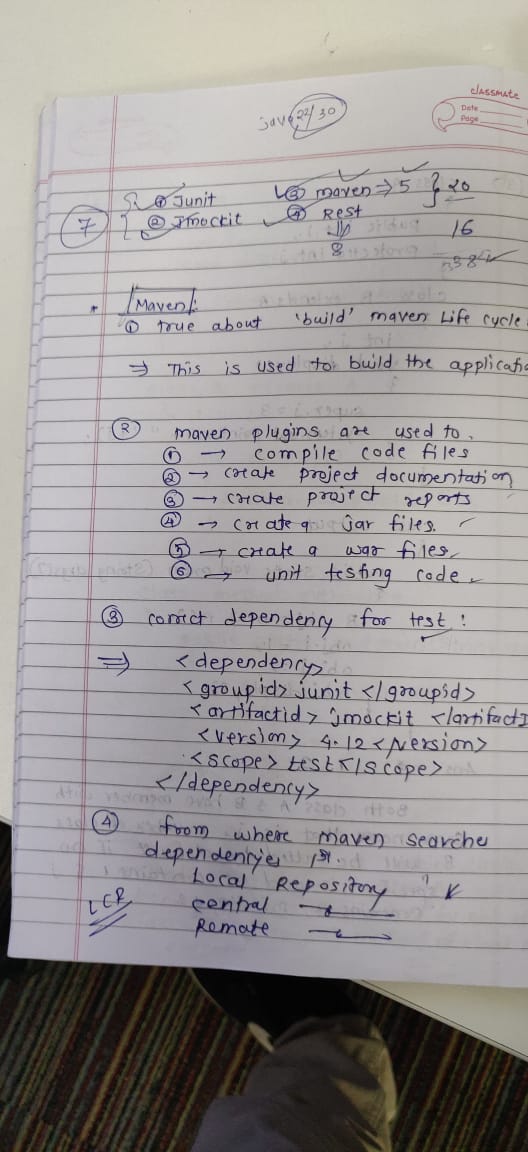 classmate
Date
Page
java 22/30
① Junit ③ maven ⇒ 5 } 20
⑦ ② Jmockit ④ Rest 16
8
* Maven:
① true about 'build' maven Life cycle
⇒ This is used to build the applicatio
② maven plugins are used to.
① → compile code files
② → create project documentation
③ → create project reports
④ → create a jar files.
⑤ → create a war files,
⑥ → unit testing code
③ correct dependency for test :
⇒ <dependency>
<groupid> junit </groupid>
<artifactid> jmockit </artifactI
<version> 4.12 </version>
<scope> test </scope>
</dependency>
④ from where maven searche
dependencyies 1st.
Local Repository
LCR central
Remate